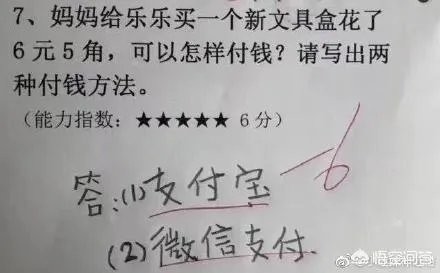 7、妈妈给乐乐买一个新文具盒花了
6元5角，可以怎样付钱？请写出两
种付钱方法。
（能力指数：★★★★★ 6分）
答:(1)支付宝
-6
(2)微信支付
悟空问答